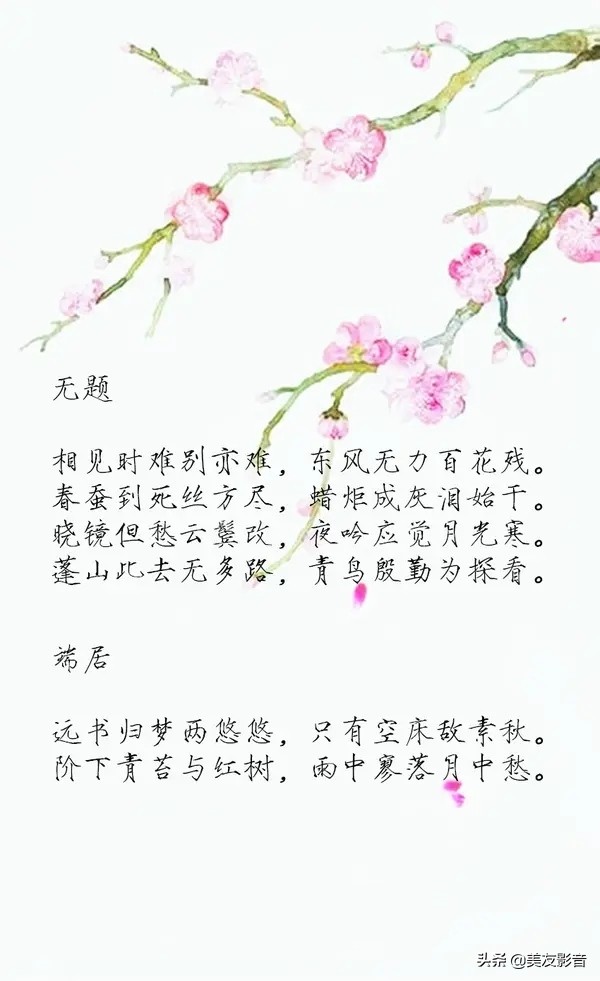 无题
相见时难别亦难，东风无力百花残。
春蚕到死丝方尽，蜡炬成灰泪始干。
晓镜但愁云鬓改，夜吟应觉月光寒。
蓬山此去无多路，青鸟殷勤为探看。
端居
远书归梦两悠悠，只有空床敌素秋。
阶下青苔与红树，雨中寥落月中愁。
头条 @美友影音